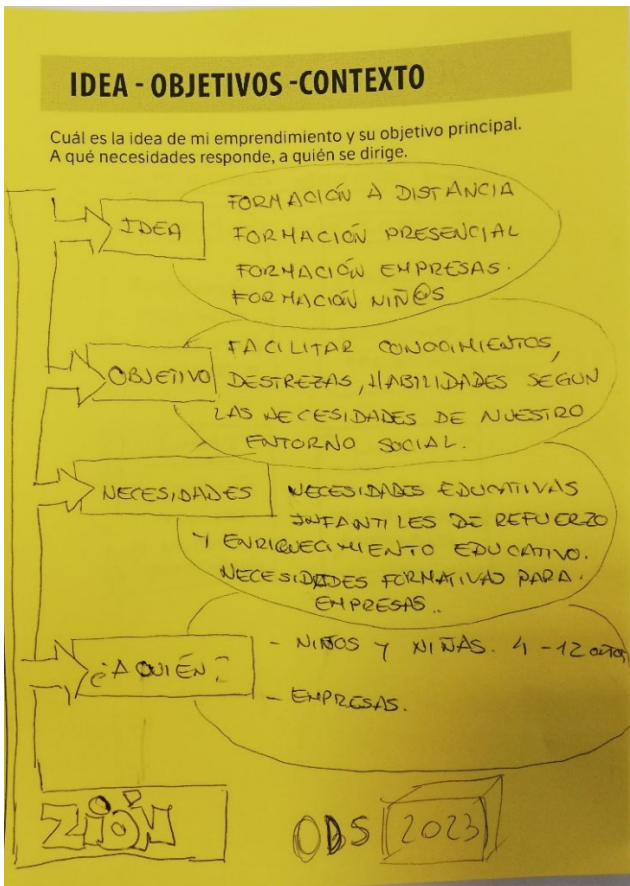 IDEA - OBJETIVOS -CONTEXTO
Cuál es la idea de mi emprendimiento y su objetivo principal.
A qué necesidades responde, a quién se dirige.
IDEA
FORMACIÓN A DISTANCIA
FORMACIÓN PRESENCIAL
FORMACIÓN EMPRESAS.
FORMACIÓN NIÑ@S
OBJETIVO
FACILITAR CONOCIMIENTOS,
DESTREZAS, HABILIDADES SEGUN
LAS NECESIDADES DE NUESTRO
ENTORNO SOCIAL.
NECESIDADES
NECESIDADES EDUCATIVAS
INFANTILES DE REFUERZO
Y ENRIQUECIMIENTO EDUCATIVO.
NECESIDADES FORMATIVAS PARA.
EMPRESAS..
¿A QUIÉN?
- NIÑOS Y NIÑAS. 4 -12 años
- EMPRESAS.
ZIÓN
ODS 2023